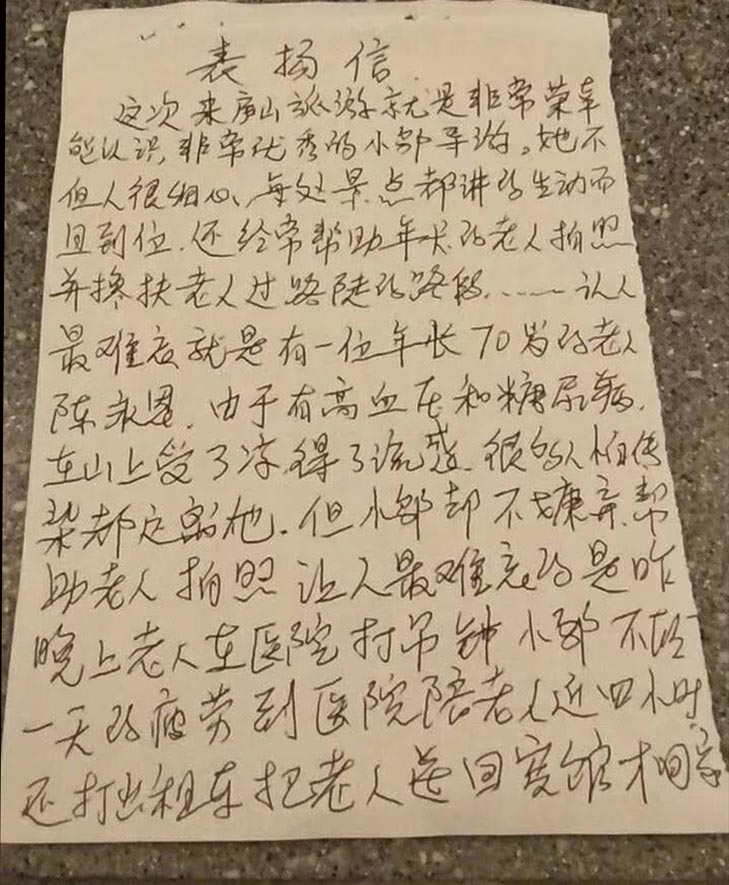 表扬信
这次来庐山旅游就是非常荣幸
能认识,非常优秀的小邹导游。她不
但人很细心、每处景点都讲的生动而
且到位.还经常帮助年长的老人拍照
并搀扶老人过路陡的路段……认人
最难忘就是有一位年长70岁的老人
陈永恩.由于有高血压和糖尿病.
在山上受了凉,得了流感.很多人怕传
染都远离他.但小邹却不嫌弃.帮
助老人拍照 让人最难忘的是昨
晚上老人在医院打吊钟 小邹不顾
一天的疲劳到医院陪老人近四小时.
还打出租车把老人送回宾馆才回家